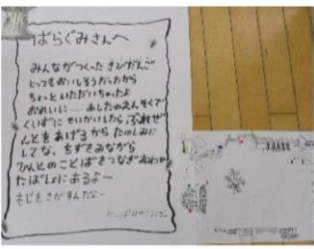 ばらぐみさんへ
みんながつくった きびだんご
とってもおいしそうだったから
ちょっと いただいちゃったよ
おれいに....あしたのえんそくで
くいずに せいかいしたら ぷれぜ
んとをあげるから たのしみに
してな。ちずをみながら
ひんとのことばをつなぎあわせ
たばしょにあるよー